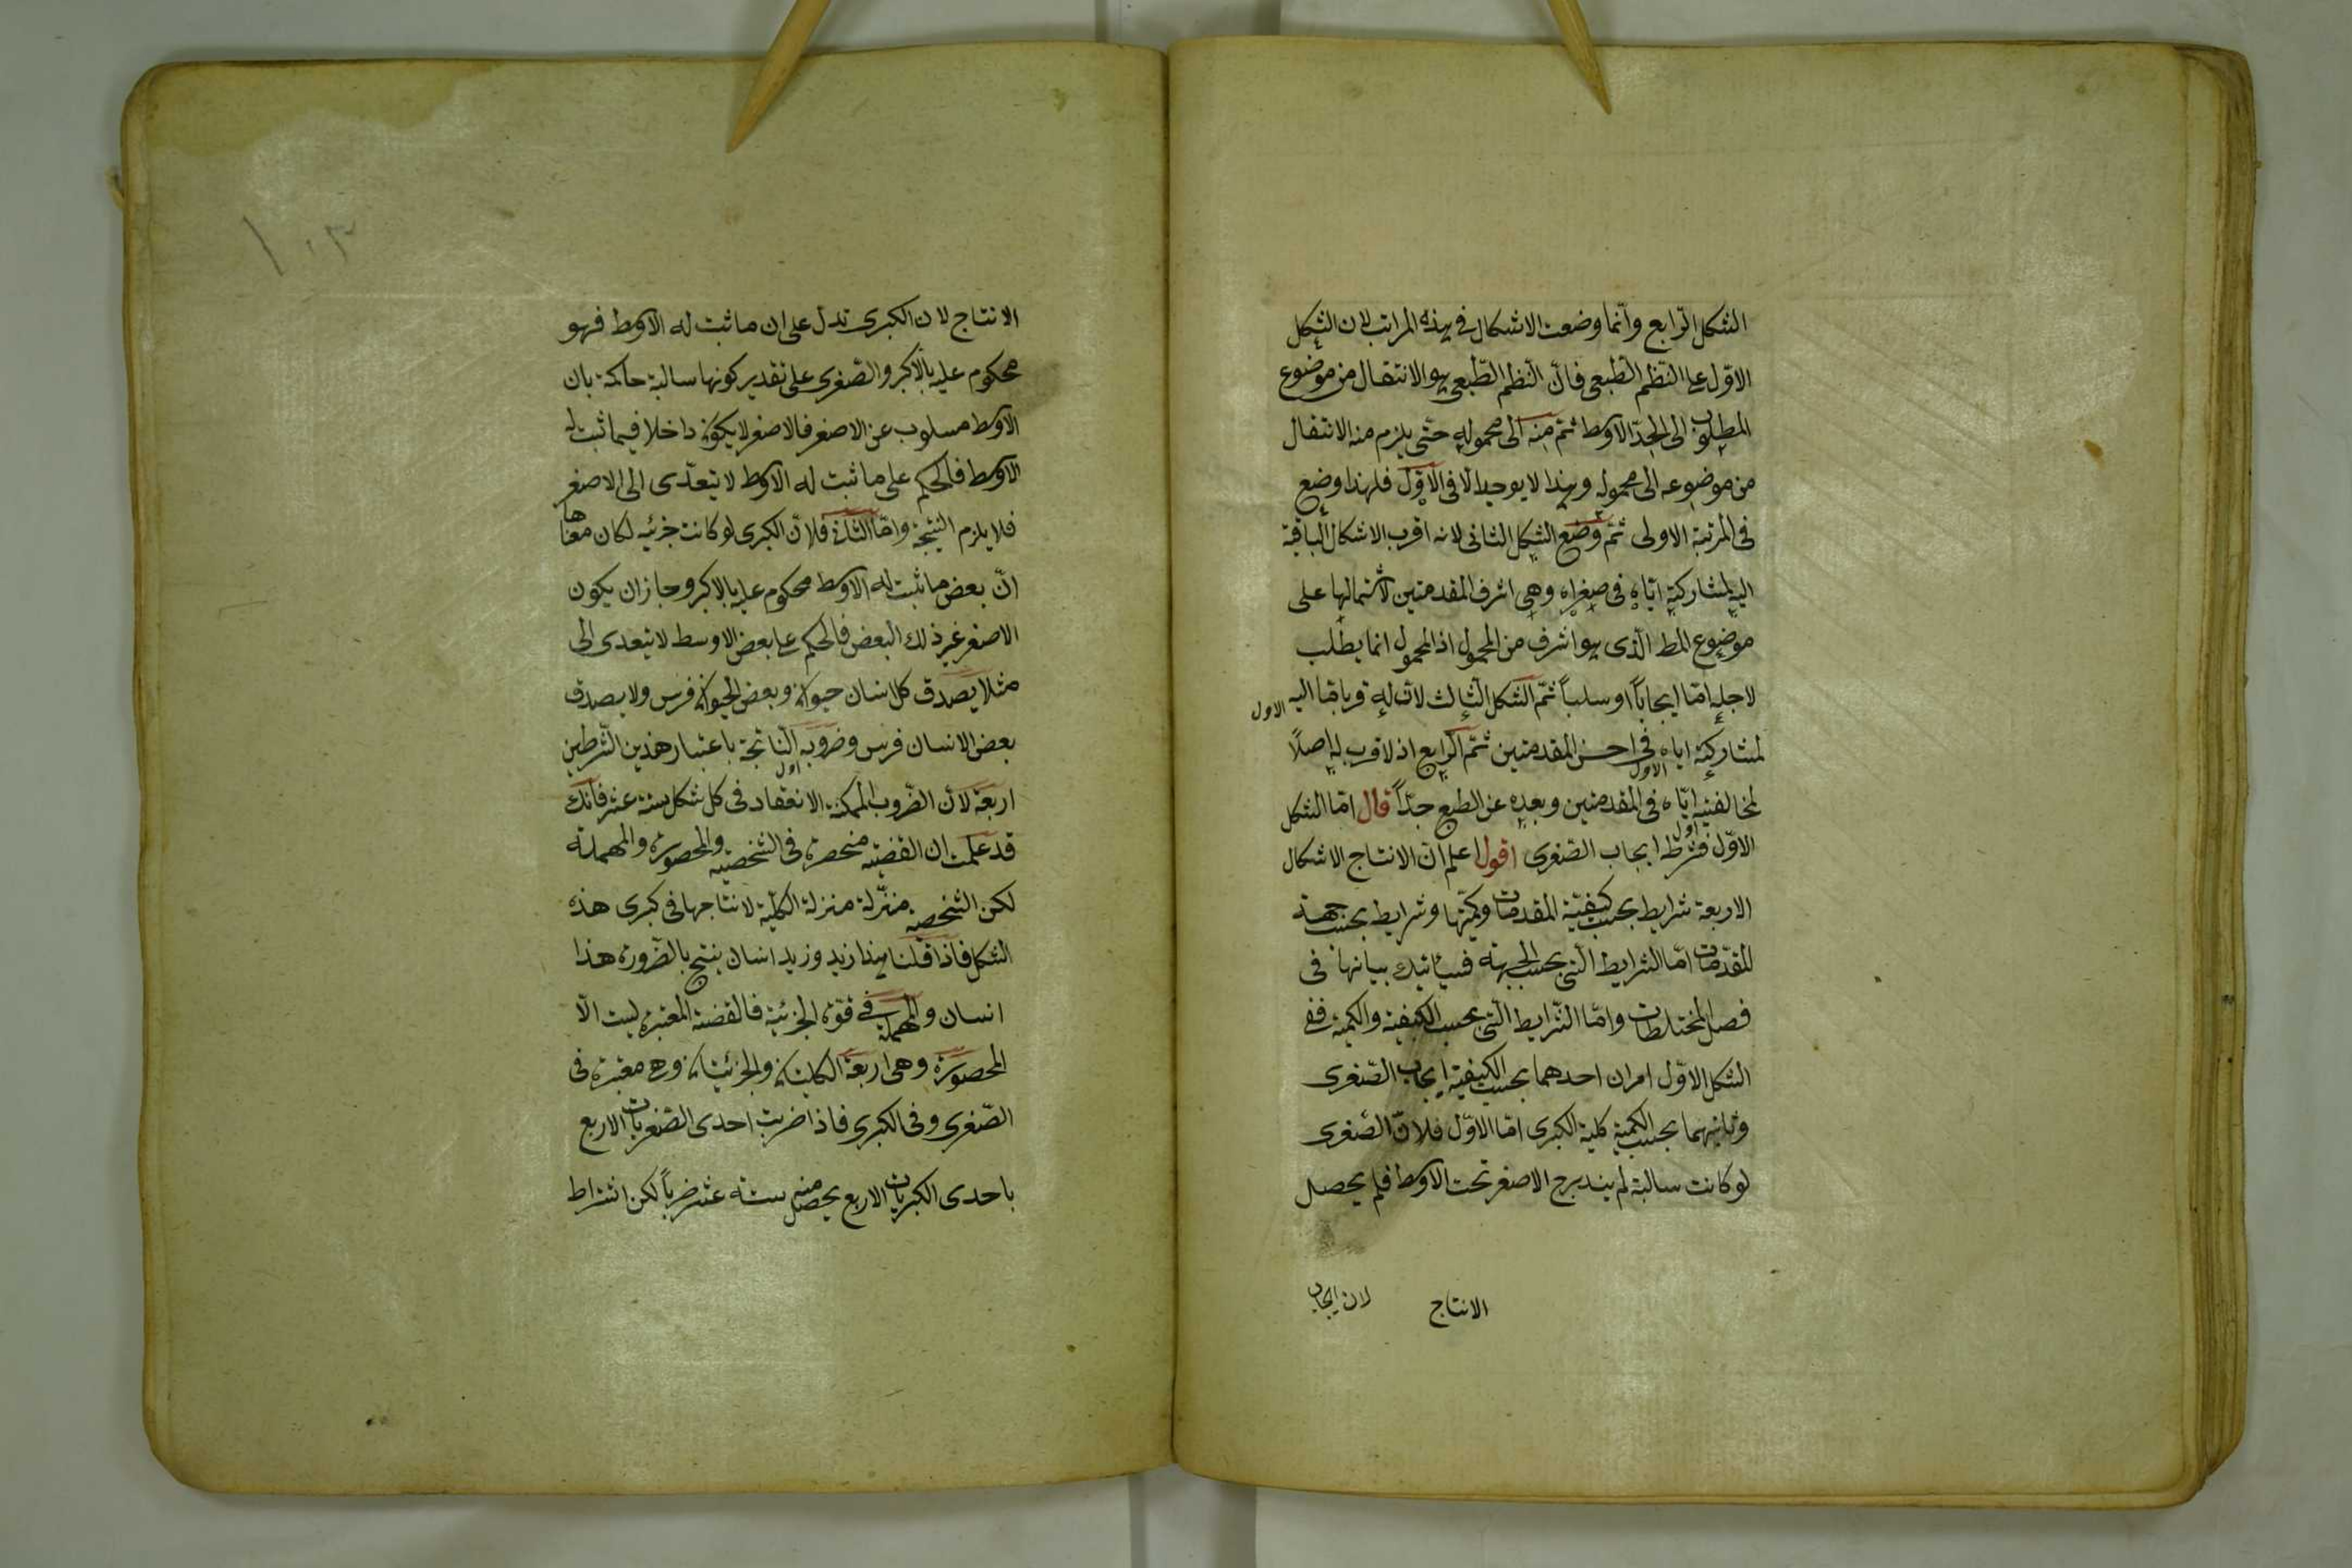 الشكل الرّابع وانّما وضعت الاشكال فى هذه المراتب لان الشكل
الاوّل على النّظم الطّبعى فانّ النّظم الطّبعى هو الانتقال من موضوع
المطلوب الى الحدّ الاوسط ثمّ منه الى محموله حتّى يلزم منه الانتقال
من موضوعه الى محموله وهذا لا يوجد الا فى الاوّل فلهذا وضع
فى المرتبة الاولى ثمّ وضع الشكل الثانى لانه اقرب الاشكال الباقية
اليه لمشاركته ايّاه فى صغراه وهى اشرف المقدمتين لاشتمالها على
موضوع المط الّذى هو اشرف من المحمول اذ المحمول انما يطلب
لاجله امّا ايجاباً او سلباً ثمّ الشكل الثالث لانّ له قربا مّا اليه
الاول
لمشاركته اياه فى اخس المقدمتين ثمّ الرّابع اذ لا قرب له اصلًا
الاول
لمخالفته ايّاه فى المقدمتين وبعده عن الطبع جدّاً قال امّا الشكل
اول
الاوّل فشرطه ايجاب الصّغرى اقول اعلم انّ الانتاج الاشكال
الاربعة شرايط بحسب كيفيّة المقدمات وكمّيتها وشرايط بحسب جهة
المقدّمات امّا الشرايط الّتى بحسب الجهة فسيأتيك بيانها فى
فصل المختلطات وامّا الشّرايط الّتى بحسب الكيفية والكمية ففى
الشكل الاوّل امران احدهما بحسب الكيفيّة ايجاب الصّغرى
وثانيهما بحسب الكمية كلية الكبرى امّا الاوّل فلانّ الصّغرى
لو كانت سالبة لم يندرج الاصغر تحت الاوسط فلم يحصل
الانتاج
لان ايجاب
الانتاج لان الكبرى تدل على ان ما ثبت له الاوسط فهو
محكوم عليه بالاكبر والصّغرى على تقدير كونها سالبة حاكمة بان
الاوسط مسلوب عن الاصغر فالاصغر لا يكون داخلا فيما ثبت له
الاوسط فالحكم على ما ثبت له الاوسط لا يتعدّى الى الاصغر
فلا يلزم النتيجة وامّا الثانى فلانّ الكبرى لو كانت جزئيه لكان معناها
انّ بعض ما ثبت له الاوسط محكوم عليه بالاكبر وجاز ان يكون
الاصغر غير ذلك البعض فالحكم على بعض الاوسط لا يتعدى الى
مثلا يصدق كل انسان حيوان وبعض الحيوان فرس ولا يصدق
بعض الانسان فرس وضروبه النّاتجة باعتبار هذين الشّرطين
اول
اربعة لانّ الضّروب الممكنة الانعقاد فى كل شكل ستة عشر فانك
قد علمت ان القضيّه منحصرة فى الشخصيّه والمحصورة والمهملة
لكن الشخصيه منزّلة منزلة الكلّية لانتاجها فى كبرى هذه
الشكل فاذا قلنا هذا زيد وزيد انسان ينتج بالضّرورة هذا
انسان والمهملة فى قوّة الجزئية فالقضية المعتبرة ليست الّا
المحصورة وهى اربعة الكليتان والجزئيتان وهى معتبرة فى
الصّغرى وفى الكبرى فاذا ضربت احدى الصّغريات الاربع
باحدى الكبريات الاربع يحصل منه ستة عشر ضرباً لكن اشتراط